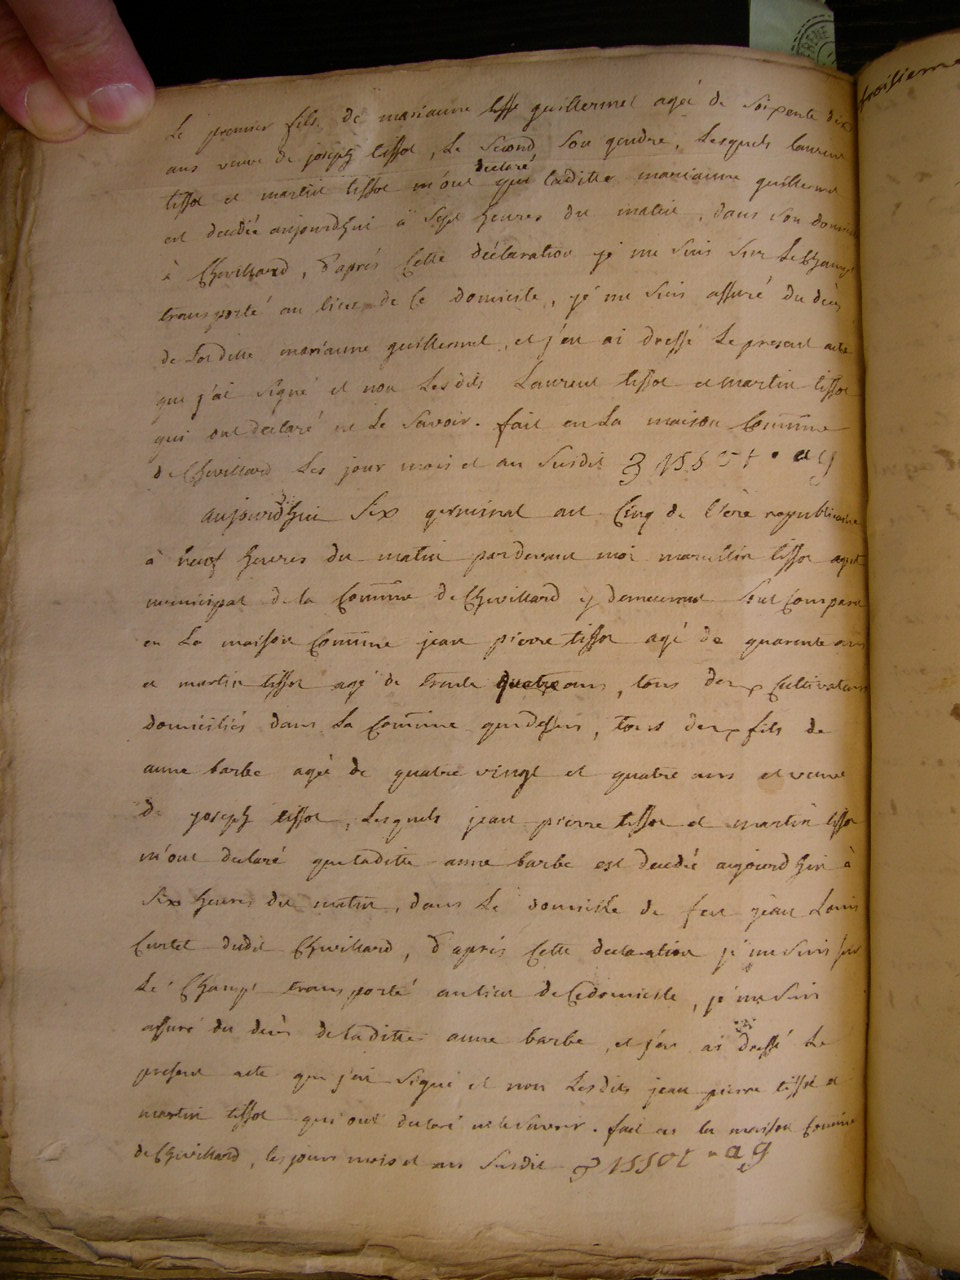 Le premier fils de marianne guillermet agée de soixente dix
ans veuve de joseph tissot, Le second son gendre, Lesquels laurent
tissot et martin tissot m'ont declaré que laditte marianne guillermet
est decedée aujourdhui à sept heures du matin, dans son domicile
à Chevillard, d'après Cette déclaration je me suis sur Le Champ
transporté au lieu de Ce domicile, je me suis assuré du decès
de Laditte marianne guillermet, et j'en ai dressé Le present acte
que j'ai signé et non Lesdits Laurent tissot et martin tissot
qui ont declaré ne Le savoir. fait en La maison Comūne
de Chevillard Les jour mois et an susdit tissot ag
aujourdhui six germinal an Cinq de l'ère republicaine
à neuf heures du matin pardevant moi marcellin tissot agent
municipal de la Comūne de Chevillard y demeurant sont Comparu
en La maison Comūne jean pierre tissot agé de quarente ans
et martin tissot agé de trente quatre ans, tous deux Cultivateurs
domiciliés dans La Comūne que dessus, tous deux fils de
anne barbe agée de quatre vingt et quatre ans et veuve
de joseph tissot, Lesquels jean pierre tissot et martin tissot
m'ont declaré que laditte anne barbe est decedée aujourdhui à
six heures du matin, dans Le domicile de feu jean Louis
Curtet dudit Chevillard, d'après Cette declaration je me suis sur
Le Champ transporté au lieu de Ce domicile, je me suis
assuré du decès de laditte anne barbe, et j'en ai dressé Le
present acte que j'ai signé et non Lesdits jean pierre tissot et
martin tissot qui ont declaré ne le savoir. fait en la maison Comūne
de Chevillard, les jours mois et an susdit tissot ag
troisieme